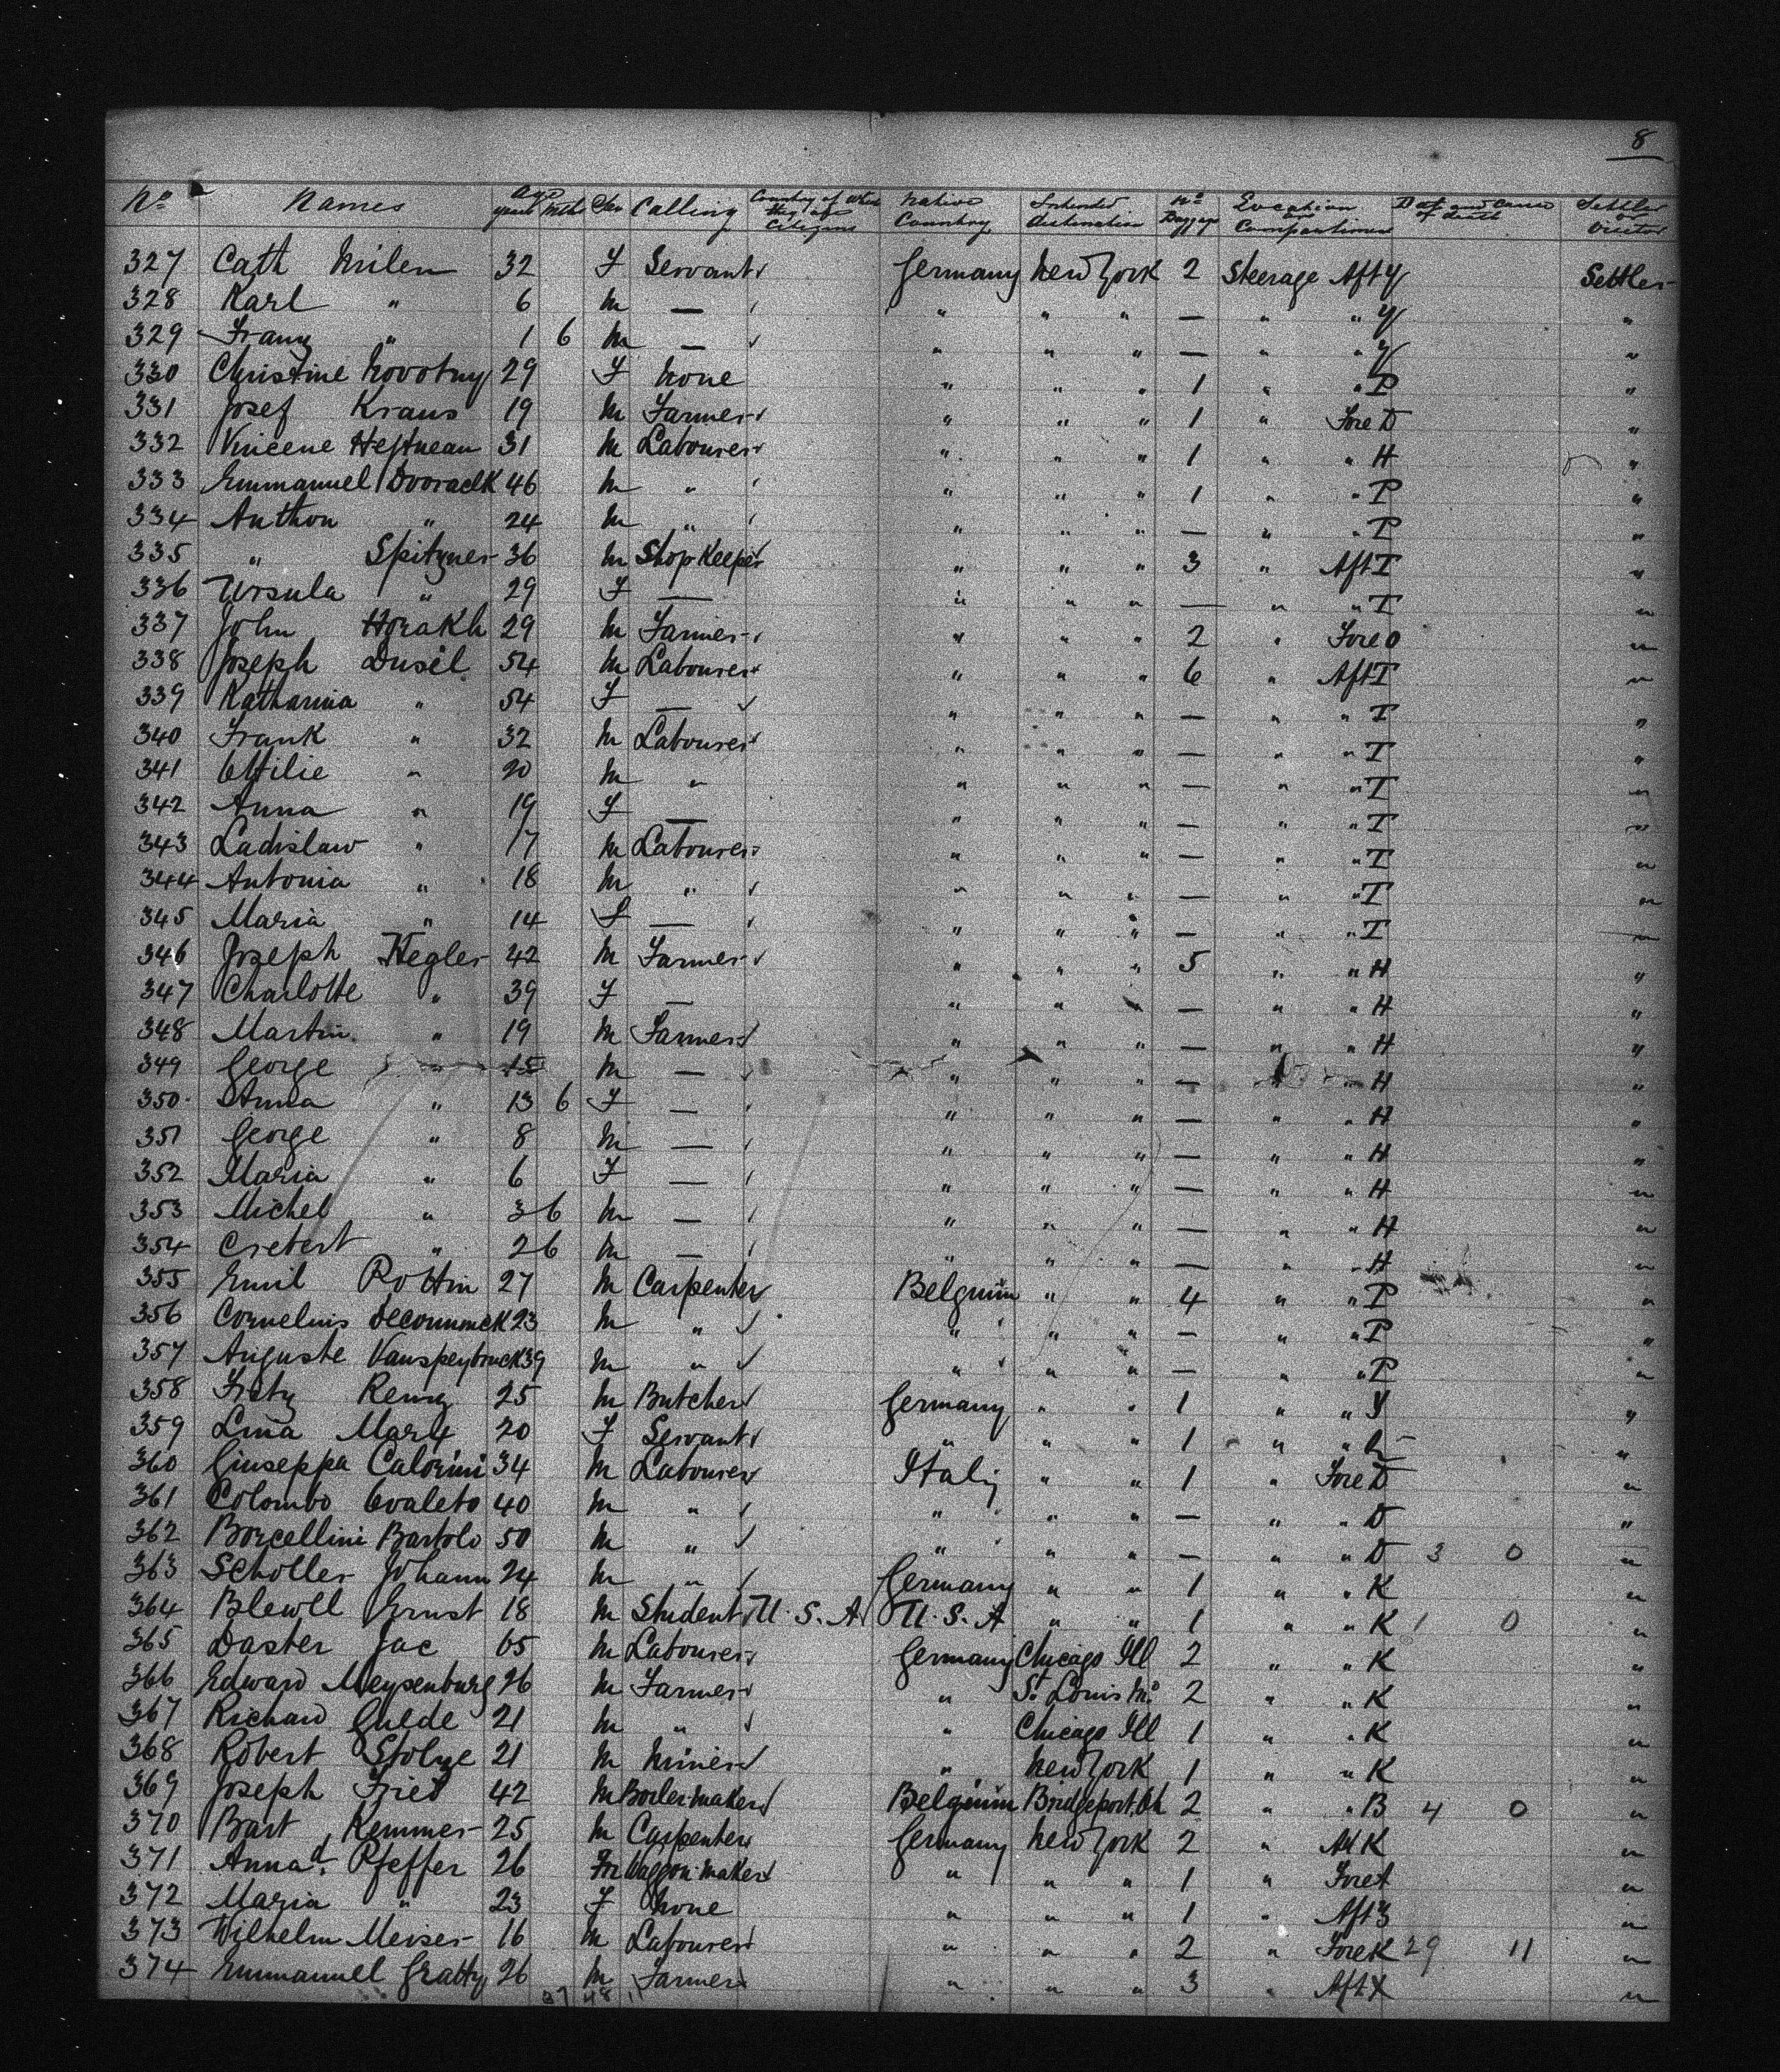 8
No Names Age years Mths Sex Calling Country of which they are Citizens Native Country Intended destination No Baggage Location or Compartment Date and Cause of death Settler or Visitor
327 Cath Milen 32 F Servant Germany New York 2 Steerage Aft Y Settler
328 Karl " 6 M — " " " — " " Y "
329 Franz " 1 6 M — " " " — " " Y "
330 Christine Novotny 29 F None " " " 1 " " P "
331 Josef Kraus 19 M Farmer " " " 1 " Fore D "
332 Vincene 31 M Labourer " " " 1 " " H "
333 Emmanuel Dvoraclk 46 M " " " " 1 " " P "
334 Anthon " 24 M " " " " — " " P "
335 " Spitzner 36 M Shop Keeper " " " 3 " Aft T "
336 Ursula " 29 F — " " " — " " T "
337 John Horakh 29 M Farmer " " " 2 " Fore O "
338 Joseph Dusil 54 M Labourer " " " 6 " Aft T "
339 Katharina " 54 F — " " " — " " T "
340 Frank " 32 M Labourer " " " — " " T "
341 Ottilie " 20 M " " " " — " " T "
342 Anna " 19 F — " " " — " " T "
343 Ladislaw " 17 M Labourer " " " — " " T "
344 Antonia " 18 M " " " " — " " T "
345 Maria " 14 F — " " " — " " T "
346 Joseph Hegler 42 M Farmer " " " 5 " " H "
347 Charlotte " 39 F — " " " — " " H "
348 Martin " 19 M Farmer " " " — " " H "
349 George " 15 M — " " " — " " H "
350 Anna " 13 6 F — " " " — " " H "
351 George " 8 M — " " " — " " H "
352 Maria " 6 F — " " " — " " H "
353 Michel " 3 6 M — " " " — " " H "
354 Crebert " 2 6 M — " " " — " " H "
355 Emil Rottin 27 M Carpenter Belgium " " 4 " " P "
356 Cornelius Deconinnck 23 M " " " " — " " P "
357 Auguste Vanspeybrnck 39 M " " " " — " " P "
358 Fritz Renz 25 M Butcher Germany " " 1 " " Y "
359 Lina Marx 20 F Servant " " " 1 " " "
360 Giuseppa Calorini 34 M Labourer Italy " " 1 " Fore D "
361 Colombo Ovaleto 40 M " " " " — " " D "
362 Borcellini Bartolo 50 M " " " " — " " D 3 0 "
363 Scholler Johann 24 M " Germany " " 1 " " K "
364 Blewll Ernst 18 M Student U.S.A U.S.A " " 1 " " K 1 0 "
365 Daster Jac 65 M Labourer Germany Chicago Ill 2 " " K "
366 Edward Meysenburg 26 M Farmer " St. Louis Mo 2 " " K "
367 Richard Guede 21 M " " Chicago Ill 1 " " K "
368 Robert Stolze 21 M Miner " New York 1 " " K "
369 Joseph Fried 42 M Boilermaker Belgium Bridgeport, Oh 2 " " B 4 0 "
370 Bart Kemmer 25 M Carpenter Germany New York 2 " Aft K "
371 Pfeffer 26 M Waggon-maker " " " 1 " Fore "
372 Maria " 23 F None " " " 1 " Aft "
373 Wilhelm Meiser 16 M Labourer " " " 2 " Fore K 29 11 "
374 Emmanuel Gratty 26 M Farmer " " " 3 " Aft X "
37 48 11